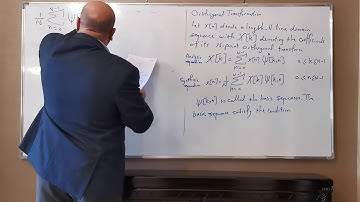 1/N Σ_{n=0}^{N-1} ψ
Orthogonal Transformation
Let x[n] denote a length-N time domain
sequence with X[k] denoting the coefficients
of its N-point orthogonal transform
Analysis equation X[k] = Σ_{n=0}^{N-1} x[n] ψ*[k,n] 0 ≤ k ≤ N-1
Synthesis equation x[n] = 1/N Σ_{k=0}^{N-1} X[k] ψ[k,n] 0 ≤ n ≤ N-1
ψ[k,n] is called the basis sequences. The
basis sequence satisfy the condition